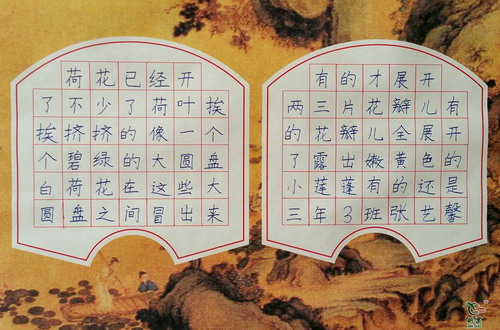 荷花已经开
了不少了荷叶挨
挨挤挤的像一个
个碧绿的大圆盘
白荷花在这些大
圆盘之间冒出来
有的才展开
两三片花瓣儿有
的花瓣儿全展开
了露出嫩黄色的
小莲蓬有的还是
三年3班张艺馨